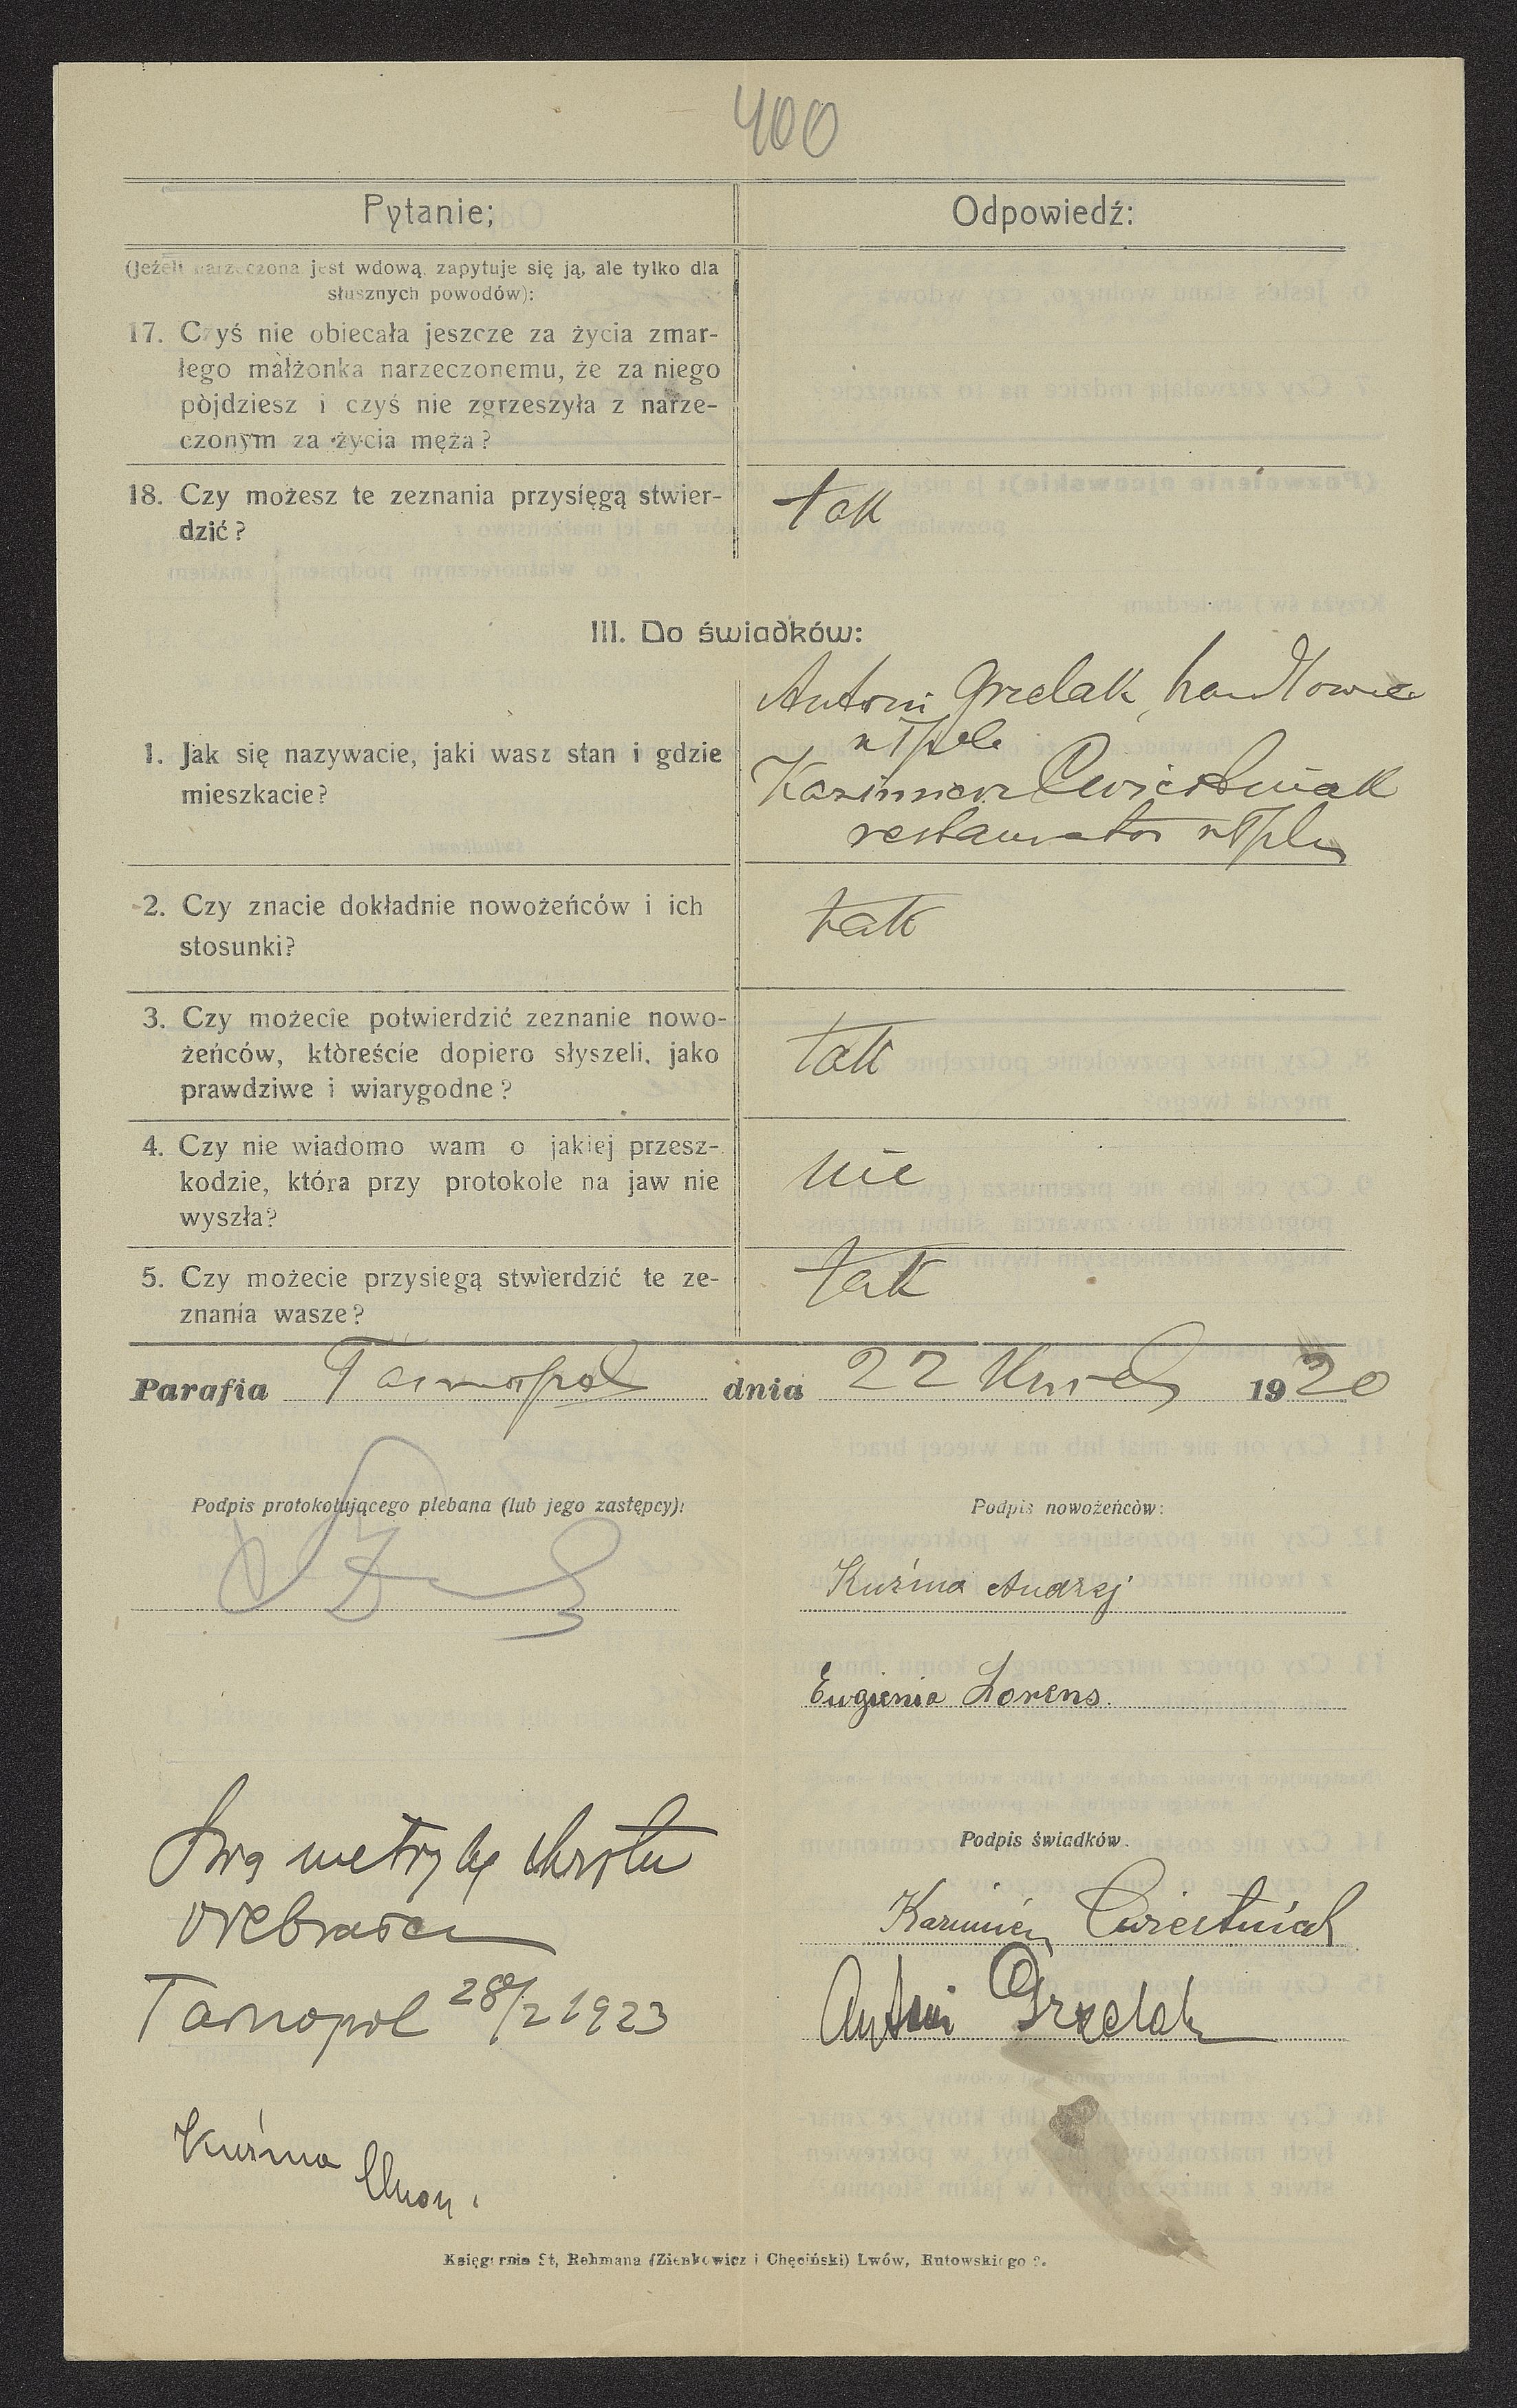 400
Pytanie;
Odpowiedź:
(Jeżeli narzeczona jest wdową, zapytuje się ją, ale tylko dla
słusznych powodów):
17. Czyś nie obiecała jeszcze za życia zmar-
łego małżonka narzeczonemu, że za niego
pòjdziesz i czyś nie zgrzeszyła z narze-
czonym za życia męża?
18. Czy możesz te zeznania przysięgą stwier-
dzić?
tak
III. Do świadków:
1. Jak się nazywacie, jaki wasz stan i gdzie
mieszkacie?
Antoni Grzelak, handlowiec
w Tplu
Kazimierz Ćwiertniak
restaurator w Tplu
2. Czy znacie dokładnie nowożeńców i ich
stosunki?
tak
3. Czy możecie potwierdzić zeznanie nowo-
żeńców, któreście dopiero słyszeli, jako
prawdziwe i wiarygodne?
tak
4. Czy nie wiadomo wam o jakiej przesz-
kodzie, która przy protokole na jaw nie
wyszła?
nie
5. Czy możecie przysięgą stwierdzić te ze-
znania wasze?
tak
Parafia Tarnopol dnia 22 1920
Podpis protokołującego plebana (lub jego zastępcy):
Podpis nowożeńców:
Kuźma Andrzej
Eugienia Lorens.
Podpis świadków.
Kazimierz Ćwiertniak
Antoni Grzelak
Swą metrykę chrztu
odebrałem
Tarnopol 28/2 1923
Kuźma
Księgarnia St, Rehmana (Zienkowicz i Chęciński) Lwów, Rutowskiego 9.